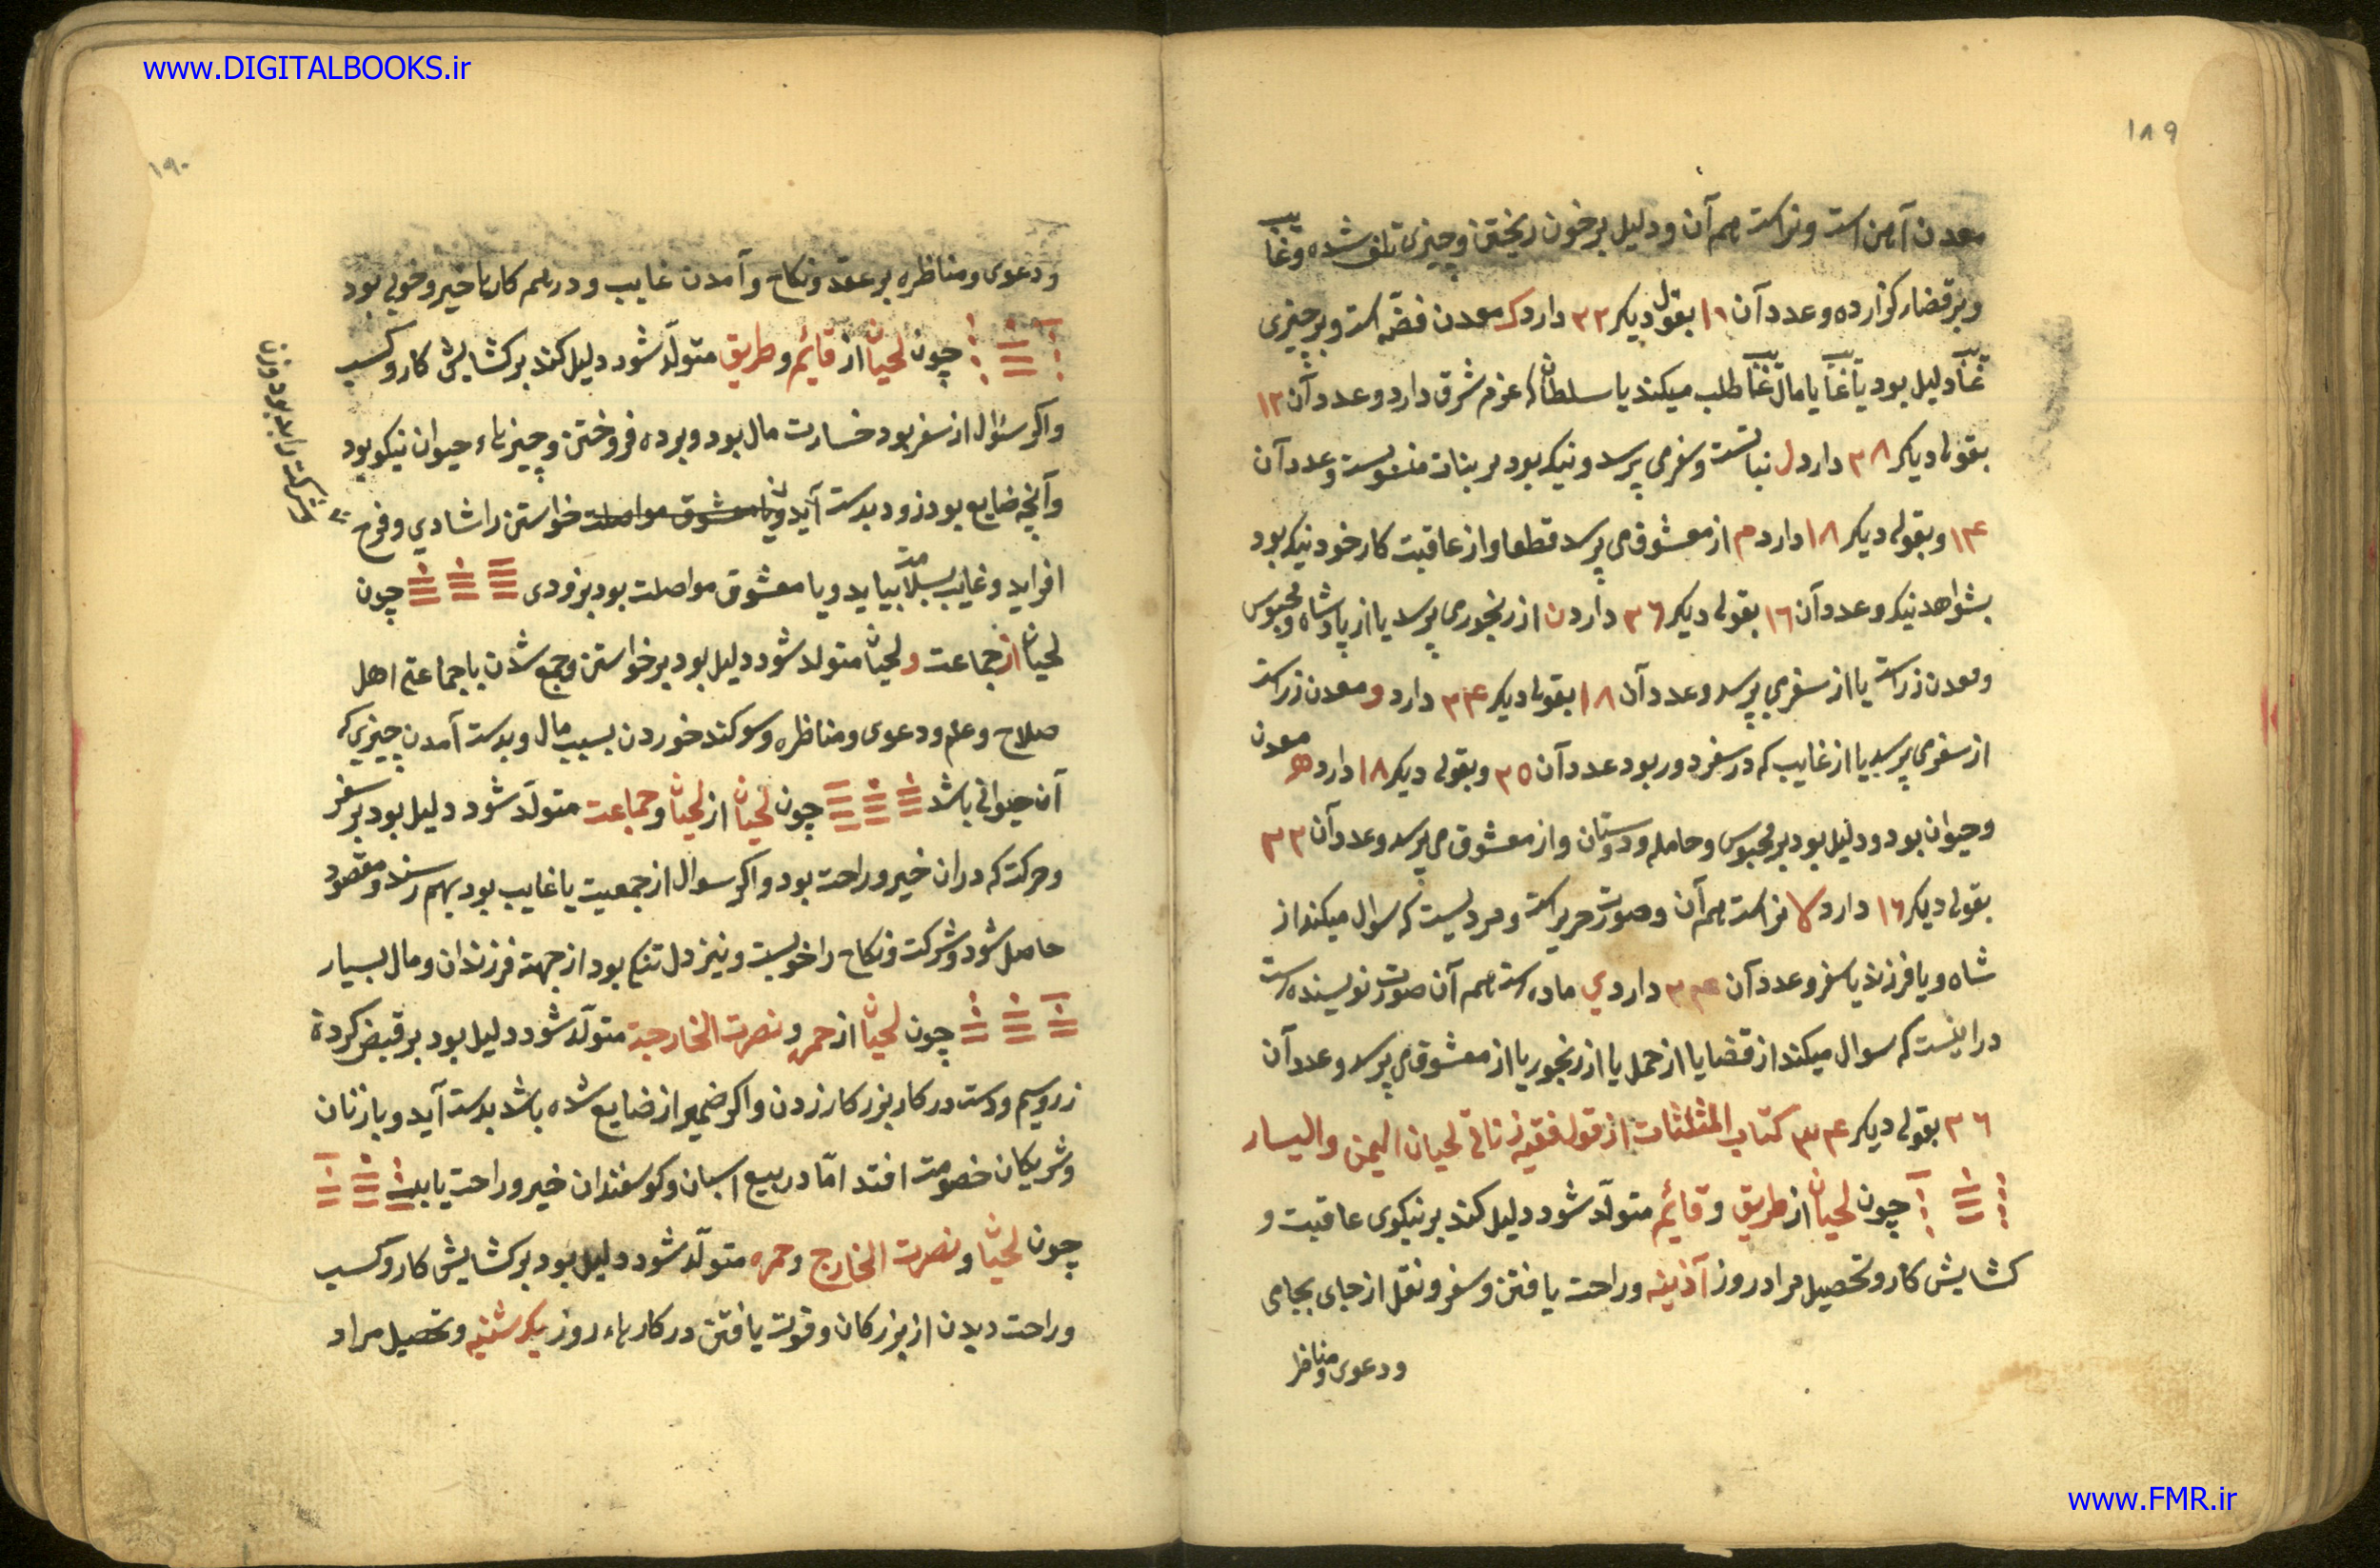 www.DIGITALBOOKS.ir
١٨٩
معدن آهن است و نر است هم آن و دلیل بر خون ریختن و چیزی تلف شده و غایب
و بر قضا رکزارده و عدد آن ١١ بقول دیکر ٣٢ دارد ک معدن فضّه است و بر چیزی
غایب دلیل بود یا غایب یا مال غایب طلب میکند یا سلطان که عزم شرق دارد و عدد آن ١٢
بقولی دیکر ٣٨ دارد ل نباتست و سفر می پرسد و نیک بود بر بنات منسوبست و عدد آن
١۴ و بقولی دیکر ١٨ دارد م از معشوق می پرسد قطعا و از عاقبت کار خود نیک بود
بشواهد نیک و عدد آن ١٦ بقولی دیکر ٣٦ دارد ن از رنجوری پرسد یا از پادشاه و محبوس
و معدن زر است یا از سفر می پرسد و عدد آن ١٨ بقولی دیکر ٣۴ دارد و معدن زر است
از سفر می پرسد یا از غایب که در سفر دور بود عدد آن ٣٥ و بقولی دیکر ١٨ دارد ه معدن
و حیوان بود و دلیل بود بر محبوس و حامله و دوستان و از معشوق می پرسد و عدد آن ٣٢
بقولی دیکر ١٦ دارد لا نر است هم آن و صورت حریر است و مردیست که سوال میکند از
شاه و یا فرزند یا سفر و عدد آن ٣۴ دارد ی ماده است هم آن صورت نویسنده است
در اینست که سوال میکند از قضایا از حمل یا از رنجور یا از معشوق می پرسد و عدد آن
٣٦ بقولی دیکر ٣۴ کتاب المثلثات از قول فقیه زناتی لحیان الیمن و الیسار
چون لحیان از طریق و قائم متولّد شود دلیل کند بر نیکوی عاقبت و
کشایش کار و تحصیل مراد روز آذینه و راحت یافتن و سفر و نقل از جای بجای
و دعوی و مناظر
١٩٠
و دعوی و مناظره بر عقد و نکاح و آمدن غایب و در هم کارها خیر و خوبی بود
چون لحیان از قائم و طریق متولّد شود دلیل کند بر کشایش کار و کسب
و اکر سئوال از سفر بود خسارت مال بود و برده فروختن و چیزهاء حیوان نیکو بود
و آنچه ضایع بود زود بدست آید و با معشوق مواصلت خواستن را شادی و فرح
شرکت را بد بود و زن
افزاید و غایب بسلامت بیاید و با معشوق مواصلت بود بزودی چون
لحیان از جماعت و لحیان متولد شود دلیل بود بر خواستن و جمع شدن با جماعتی اهل
صلاح و علم و دعوی و مناظره و سوکند خوردن بسبب مال و بدست آمدن چیزی که
آن حیوانی باشد چون لحیان از لحیان و جماعت متولّد شود دلیل بود بر سفر
و حرکت که در ان خیر و راحت بود و اکر سوال از جمعیت یا غایب بود بهم رسند و مقصود
حاصل شود و شرکت و نکاح را خوبست و نیز دل تنکی بود از جهة فرزندان و مال بسیار
چون لحیان از حمره و نصرت الخارجة متولّد شود دلیل بود بر قبض کردهٔ
زر و سیم و دست در کار بزرکار زدن و اکر ضمیر از ضایع شده باشد بدست آید و با زنان
و شریکان خصومت افتد امّا در بیع اسبان و کوسفندان خیر و راحت یابد
چون لحیان و نصرت الخارج و حمره متولّد شود دلیل بود بر کشایش کار و کسب
و راحت دیدن از بزرکان و قوت یافتن در کارهاء روز یکشنبه و تحصیل مراد
www.FMR.ir